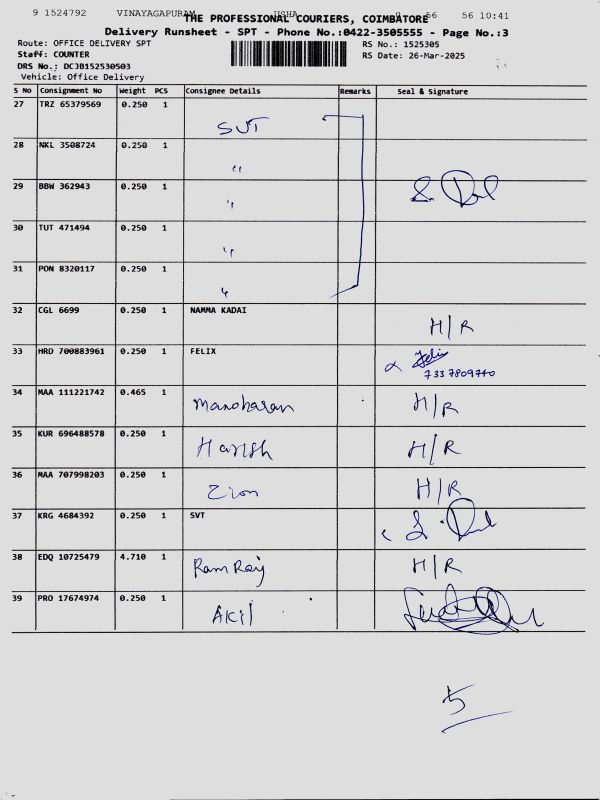 9 1524792 VINAYAGAPURAM USHA 9 56 56 10:41
THE PROFESSIONAL COURIERS, COIMBATORE
Delivery Runsheet - SPT - Phone No.:0422-3505555 - Page No.:3
Route: OFFICE DELIVERY SPT RS No.: 1525305
Staff: COUNTER RS Date: 26-Mar-2025
DRS No.: DCJB152530503
Vehicle: Office Delivery
S No Consignment No Weight PCS Consignee Details Remarks Seal & Signature
27 TRZ 65379569 0.250 1 SVT
28 NKL 3508724 0.250 1 "
29 BBW 362943 0.250 1 "
30 TUT 471494 0.250 1 "
31 PON 8320117 0.250 1 "
32 CGL 6699 0.250 1 NAMMA KADAI H/R
33 HRD 700883961 0.250 1 FELIX Felix
7337809740
34 MAA 111221742 0.465 1 Manoharan H/R
35 KUR 696488578 0.250 1 Harish H/R
36 MAA 707998203 0.250 1 Zion H/R
37 KRG 4684392 0.250 1 SVT
38 EDQ 10725479 4.710 1 Ram Raj H/R
39 PRO 17674974 0.250 1 AKil